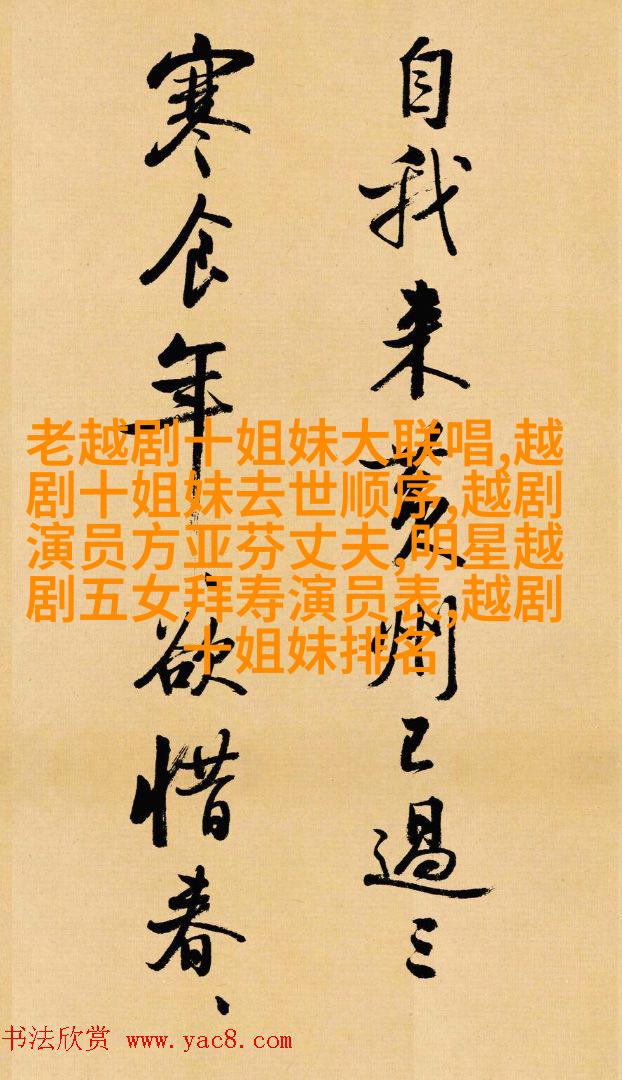 自我来黄州已過三
寒食年欲惜春、
老越剧十姐妹大联唱,越
剧十姐妹去世顺序,越剧
演员方亚芬丈夫,明星越
剧五女拜寿演员表,越剧
十姐妹排名
书法欣赏 www.yac8.com